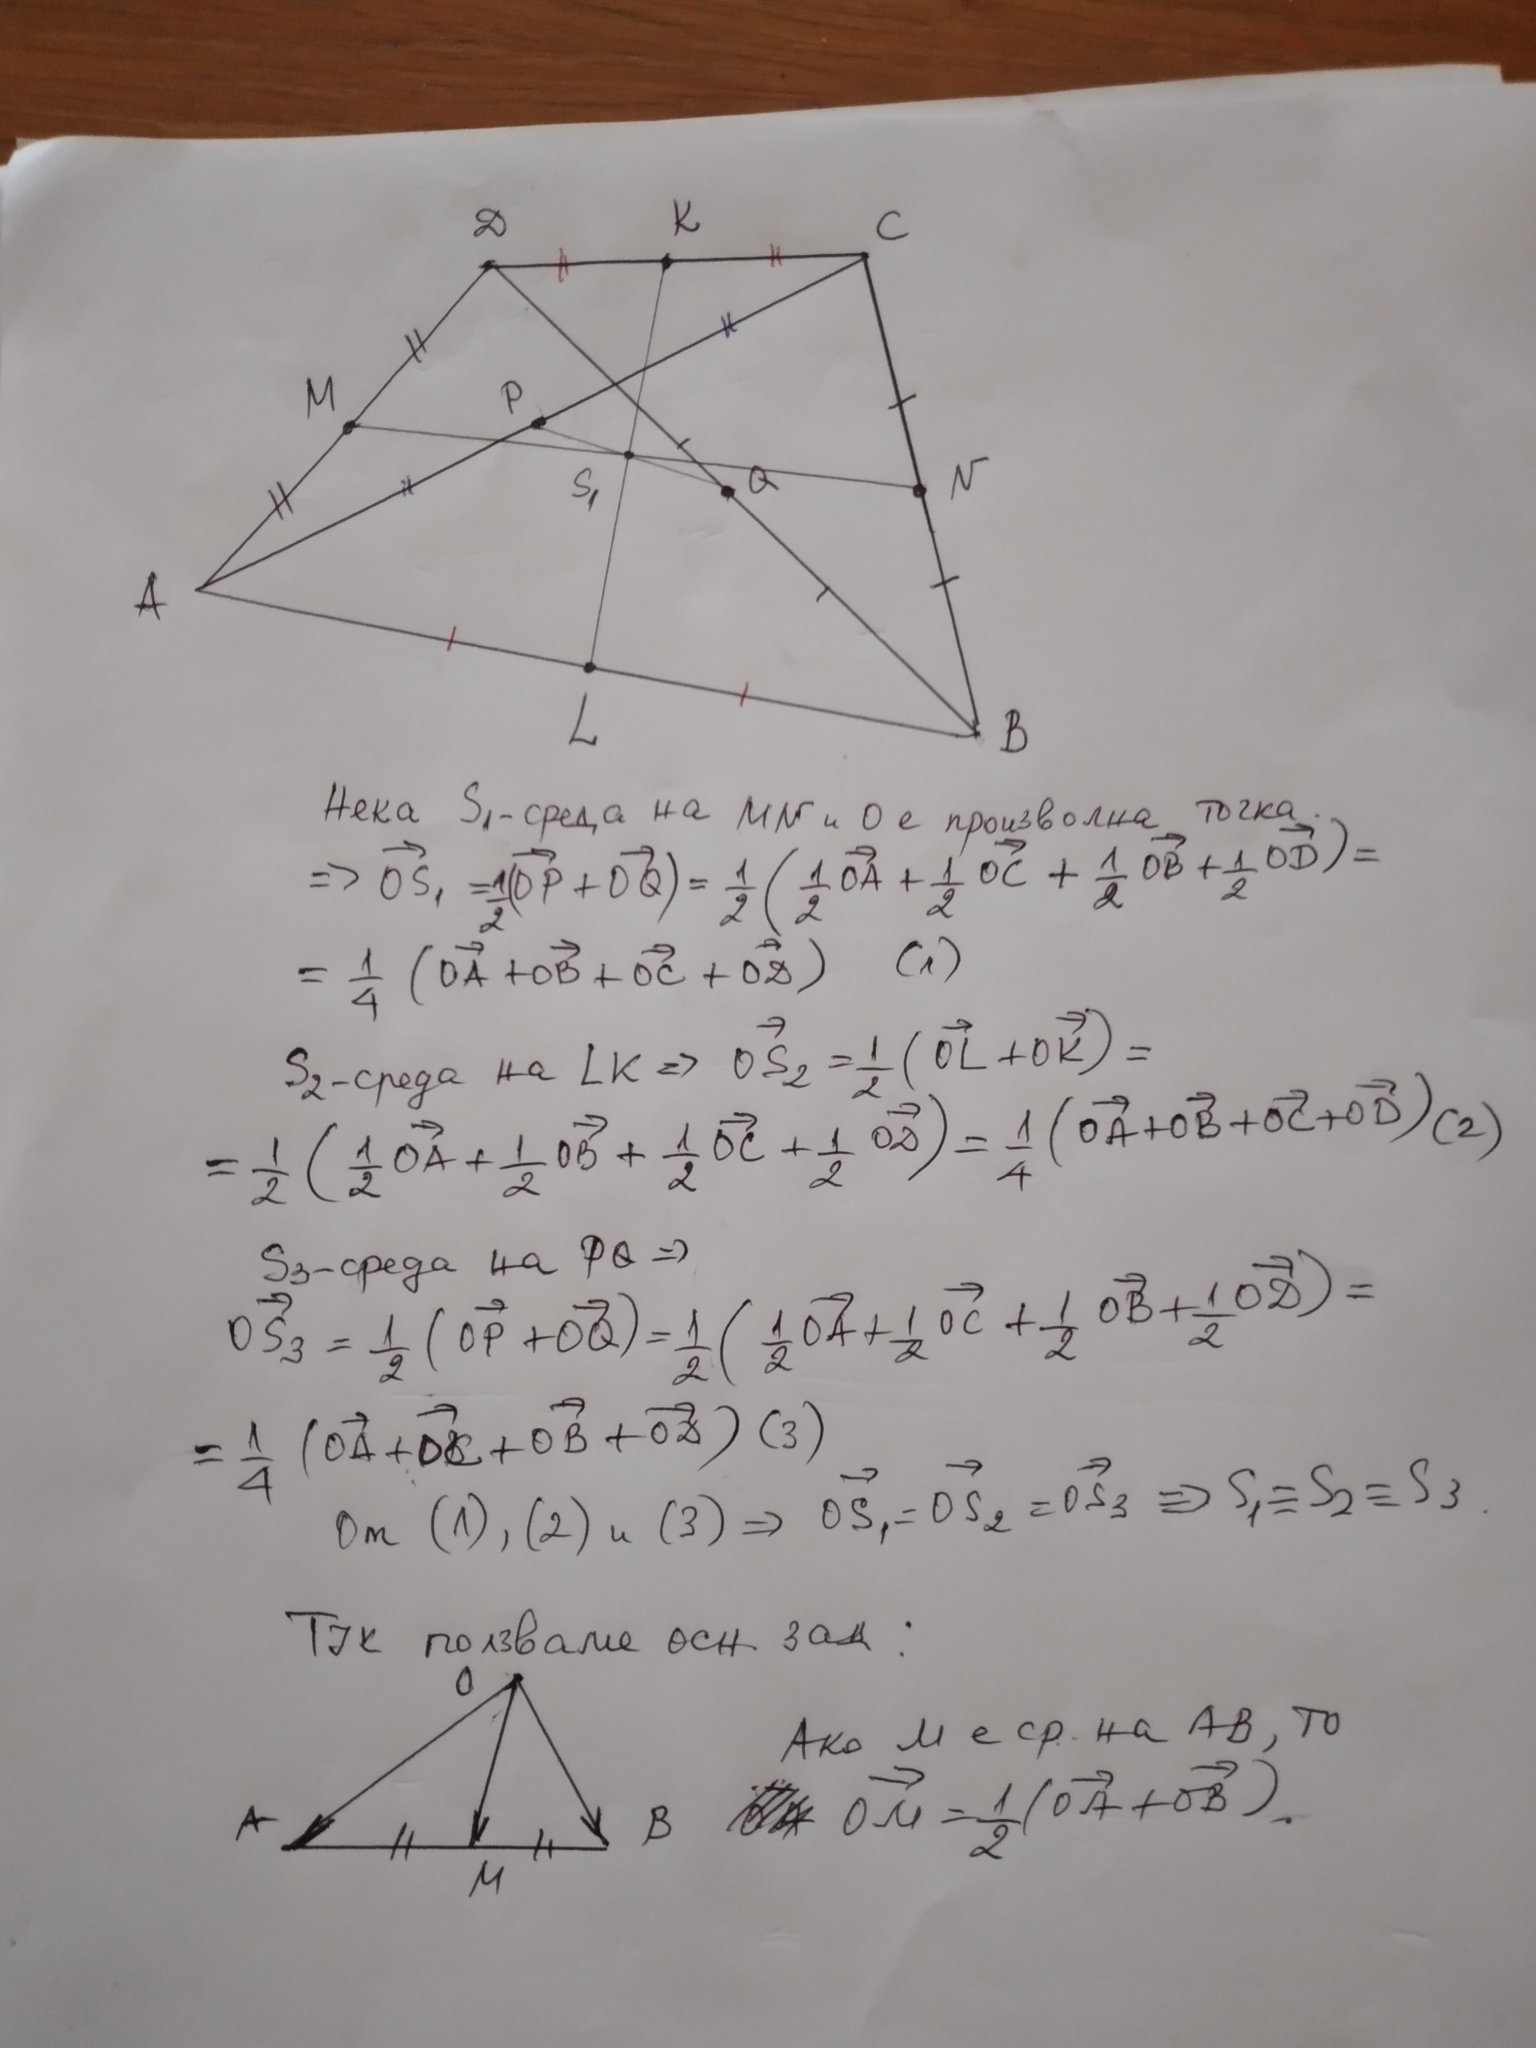 D K C
M P
S₁ Q N
A
L B
Нека S₁-среда на MN и O е произволна точка.
=> \vec{OS₁} = \frac{1}{2}(\vec{OP} + \vec{OQ}) = \frac{1}{2}(\frac{1}{2}\vec{OA} + \frac{1}{2}\vec{OC} + \frac{1}{2}\vec{OB} + \frac{1}{2}\vec{OD}) =
= \frac{1}{4}(\vec{OA} + \vec{OB} + \vec{OC} + \vec{OD}) (1)
S₂-среда на LK => \vec{OS₂} = \frac{1}{2}(\vec{OL} + \vec{OK}) =
= \frac{1}{2}(\frac{1}{2}\vec{OA} + \frac{1}{2}\vec{OB} + \frac{1}{2}\vec{OC} + \frac{1}{2}\vec{OD}) = \frac{1}{4}(\vec{OA} + \vec{OB} + \vec{OC} + \vec{OD}) (2)
S₃-среда на PQ =>
\vec{OS₃} = \frac{1}{2}(\vec{OP} + \vec{OQ}) = \frac{1}{2}(\frac{1}{2}\vec{OA} + \frac{1}{2}\vec{OC} + \frac{1}{2}\vec{OB} + \frac{1}{2}\vec{OD}) =
= \frac{1}{4}(\vec{OA} + \vec{OC} + \vec{OB} + \vec{OD}) (3)
От (1), (2) и (3) => \vec{OS₁} = \vec{OS₂} = \vec{OS₃} => S₁ ≡ S₂ ≡ S₃.
Тук ползваме осн. зад:
O
Ако M е ср. на AB, то
A M B
\vec{OM} = \frac{1}{2}(\vec{OA} + \vec{OB}).